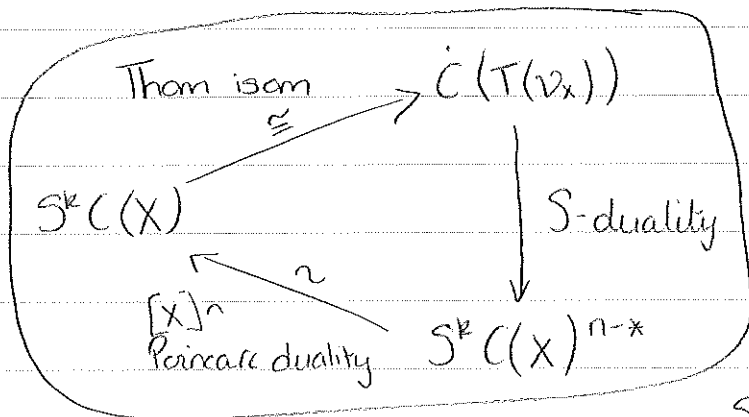 Thom isom
≅
Ċ(T(ν_X))
S^k C(X)
S-duality
~
[X]∩
Poincaré duality
S^k C(X)^{n-*}